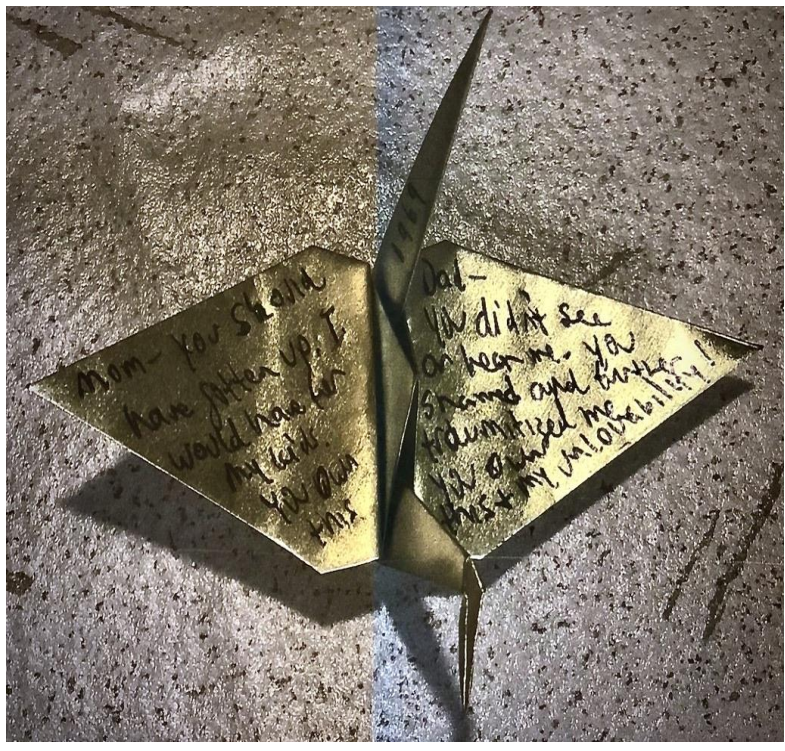 1969
mom- You Should
have gotten up. I
would have for
my kids.
You own
this
Dad-
You didn't see
or hear me. You
shamed and further
traumatized me
You owned me
this + my unlovability!